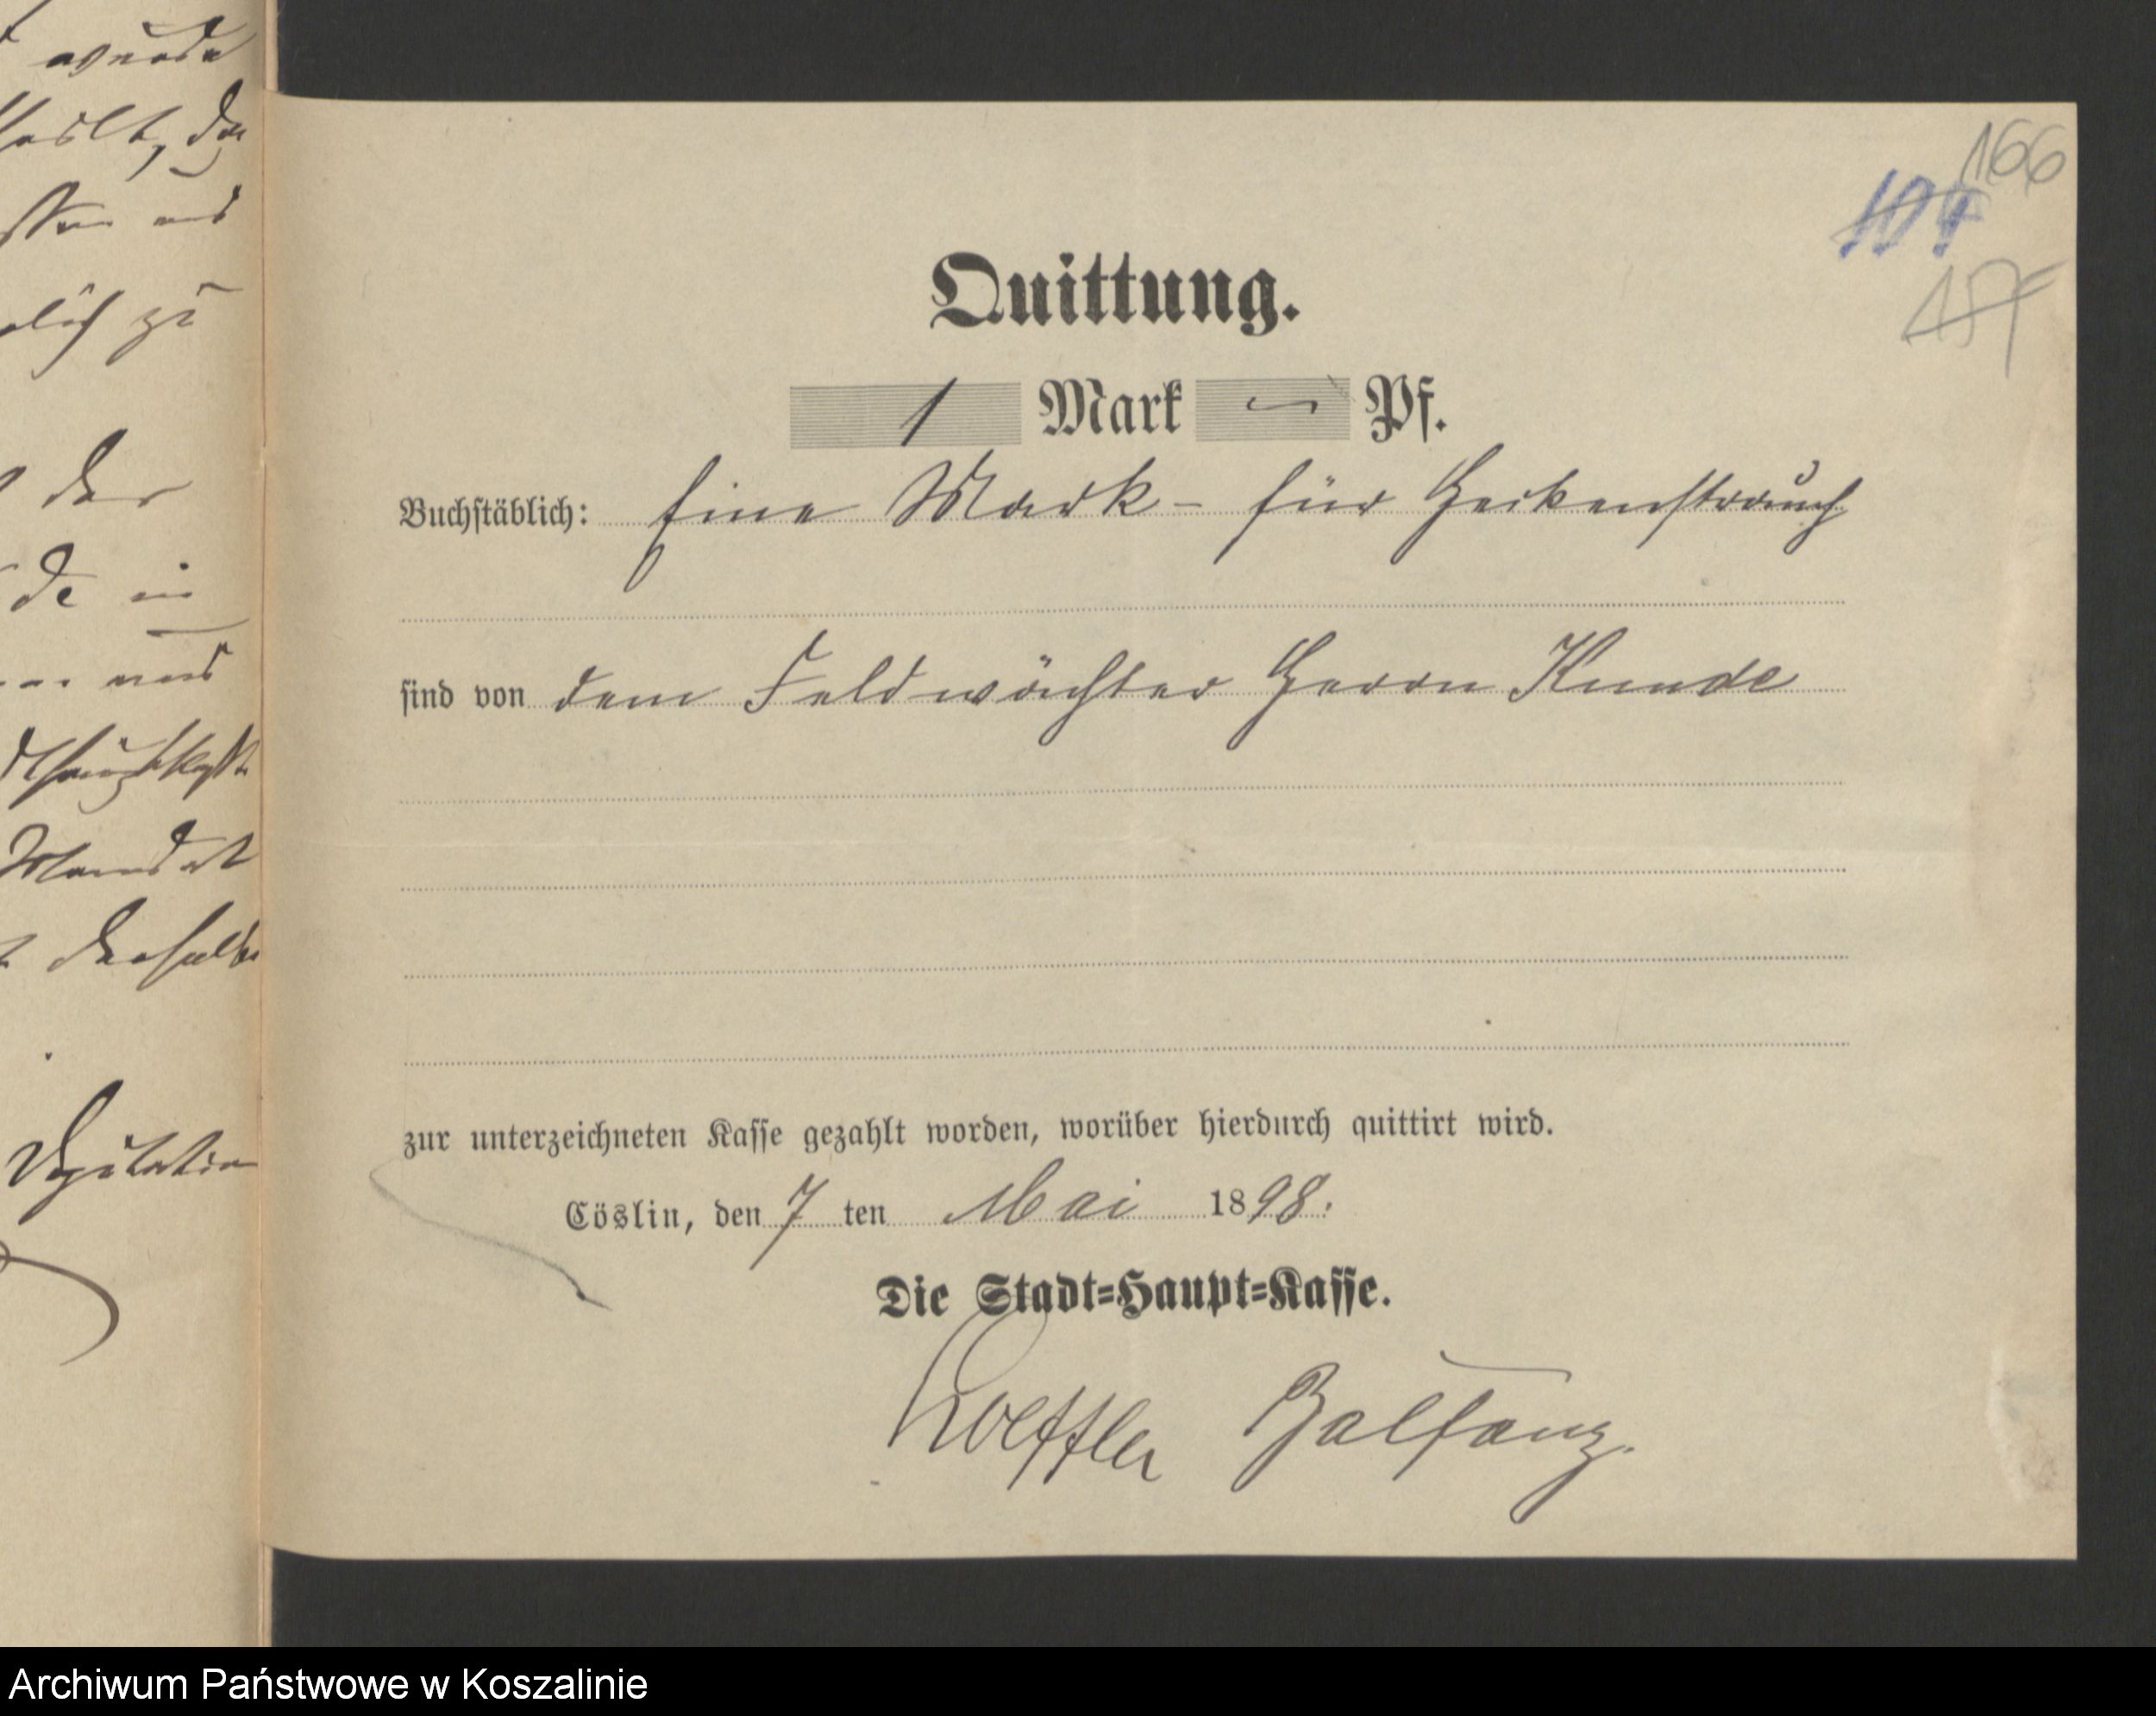 wurde
zu
der
de in
und
Mandat
derselbe
Deputation
166
104
157
Quittung.
1 Mark — Pf.
Buchstäblich: Eine Mark - für Heckenstrauch
sind von dem Feldwächter Herrn Kunde
zur unterzeichneten Kasse gezahlt worden, worüber hierdurch quittirt wird.
Cöslin, den 7 ten Mai 1898.
Die Stadt=Haupt=Kasse.
Loeffler Balfanz.
Archiwum Państwowe w Koszalinie